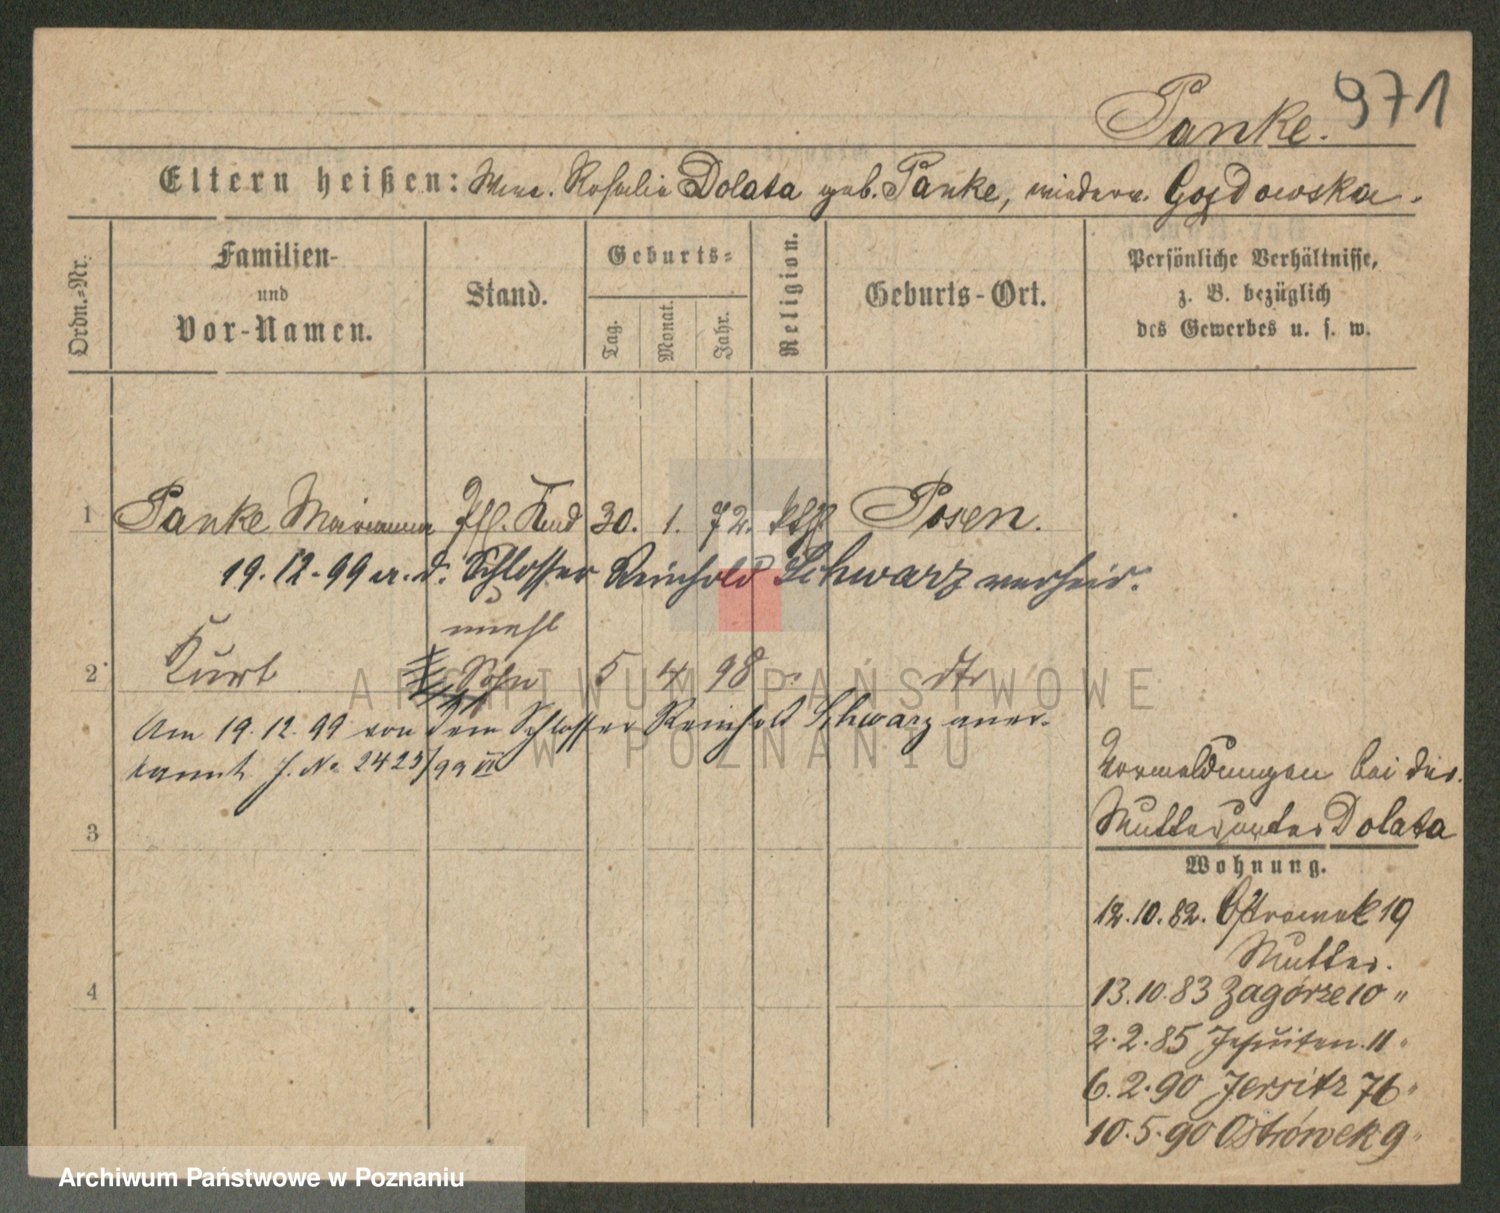 971
Panke.
Eltern heißen: Wwe. Rosalie Dolata geb. Panke, wiederv. Gozdowska.
Ordn.-Nr.
Familien-
und
Vor-Namen.
Stand.
Geburts-
Tag.
Monat.
Jahr.
Religion.
Geburts-Ort.
Persönliche Verhältnisse,
z. B. bezüglich
des Gewerbes u. s. w.
1 Panke Marianna Kind 30. 1. 72. kth Posen.
19.12.99 a. d. Schlosser Reinhold Schwarz verheir.
unehl
2 Kurt Sohn 5 4 98 dto
Am 19.12.99 von dem Schlosser Reinhold Schwarz aner-
kannt J. No 2423/99 VI
3
4
Vormeldungen bei der
Mutter unter Dolata
Wohnung.
12.10.82. Ostrowek 19
Mutter.
13.10.83 Zagórze 10 "
2.2.85 Jesuiten. 11 "
6.2.90 Jersitz 76 "
10.5.90 Ostrówek 9 "
ARCHIWUM PAŃSTWOWE
W POZNANIU
Archiwum Państwowe w Poznaniu